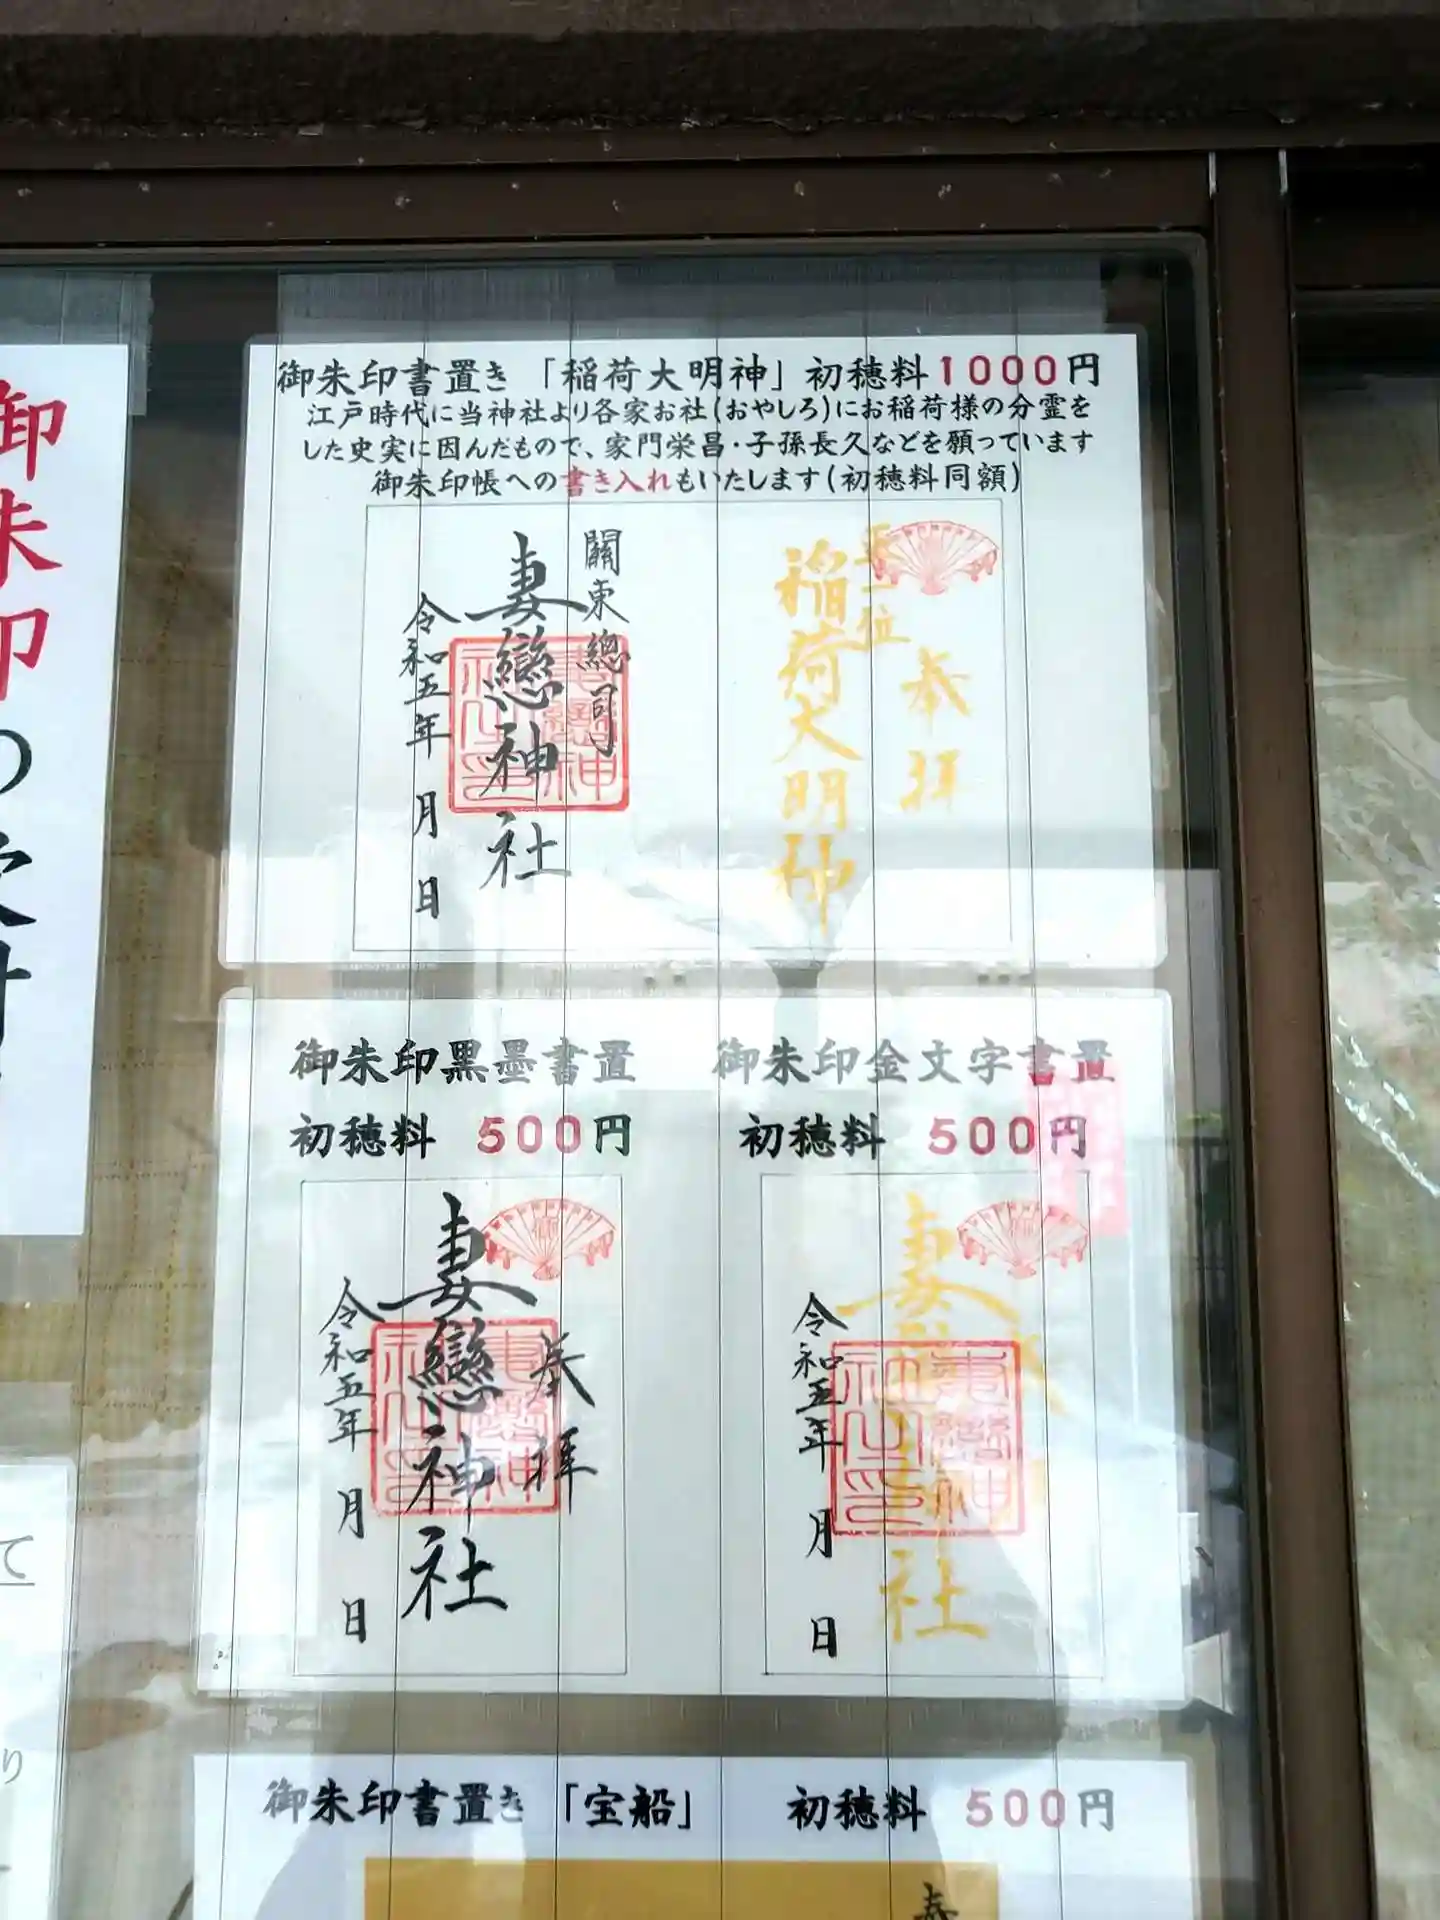 御朱印書置き「稲荷大明神」初穂料1000円
江戸時代に当神社より各家お社(おやしろ)にお稲荷様の分霊を
した史実に因んだもので、家門栄昌・子孫長久などを願っています
御朱印帳への書き入れもいたします(初穂料同額)
奉拝
正一位
稲荷大明神
關東總司
妻戀神社
令和五年 月 日
御朱印黒墨書置
初穂料 500円
奉拝
妻戀神社
令和五年 月 日
御朱印金文字書置
初穂料 500円
令和五年 月 日
御朱印書置き「宝船」 初穂料 500円
御朱印の受付
て
り